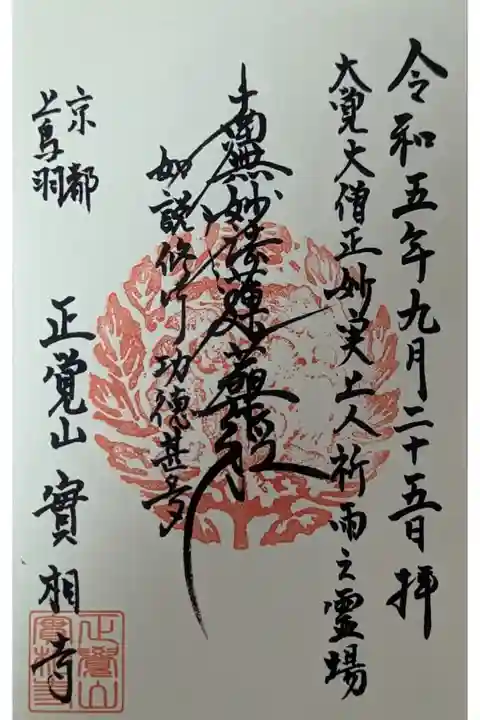 令和五年九月二十五日 拝
大覚大僧正妙実上人祈雨之霊場
南無妙法蓮華経
如説修行功徳甚多
京都
上鳥羽
正覚山 實相寺
正覺山
實相寺